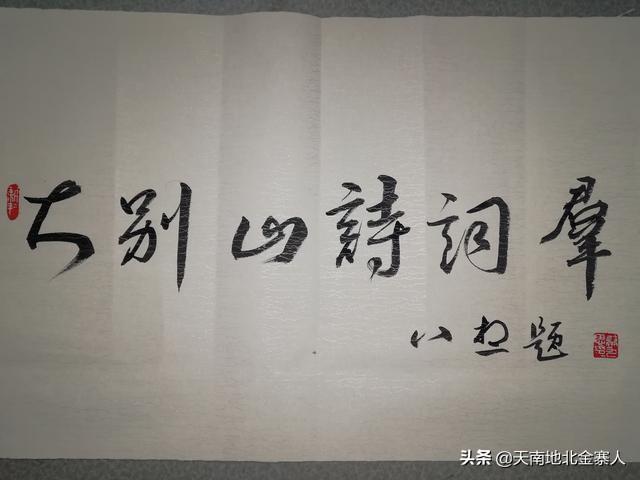 大别山詩詞羣
八想题
头条 @天南地北金寨人